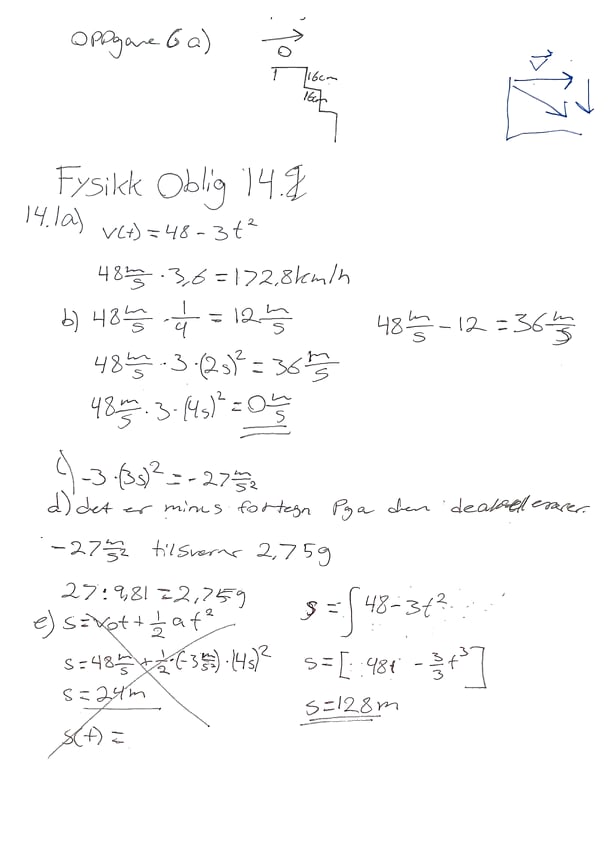 Oppgave 6 a)
16cm
16cm
v
Fysikk Oblig 14.1
14.1a)
v(t) = 48 - 3t²
48 m/s · 3,6 = 172,8 km/h
b) 48 m/s · 1/4 = 12 m/s
48 m/s - 12 = 36 m/s
48 m/s · 3 · (2s)² = 36 m/s
48 m/s · 3 · (4s)² = 0 m/s
c) -3 · (3s)² = -27 m/s²
d) det er minus fortegn Pga den
-27 m/s² tilsvarer 2,75g
27 : 9,81 = 2,75g
e) s = v₀t + 1/2 at²
s = 48 m/s + 1/2 · (-3 m/s²) · (4s)²
s = 24m
s(t) =
s = ∫ 48 - 3t²
s = [ 48t - 3/3 t³ ]
s = 128m